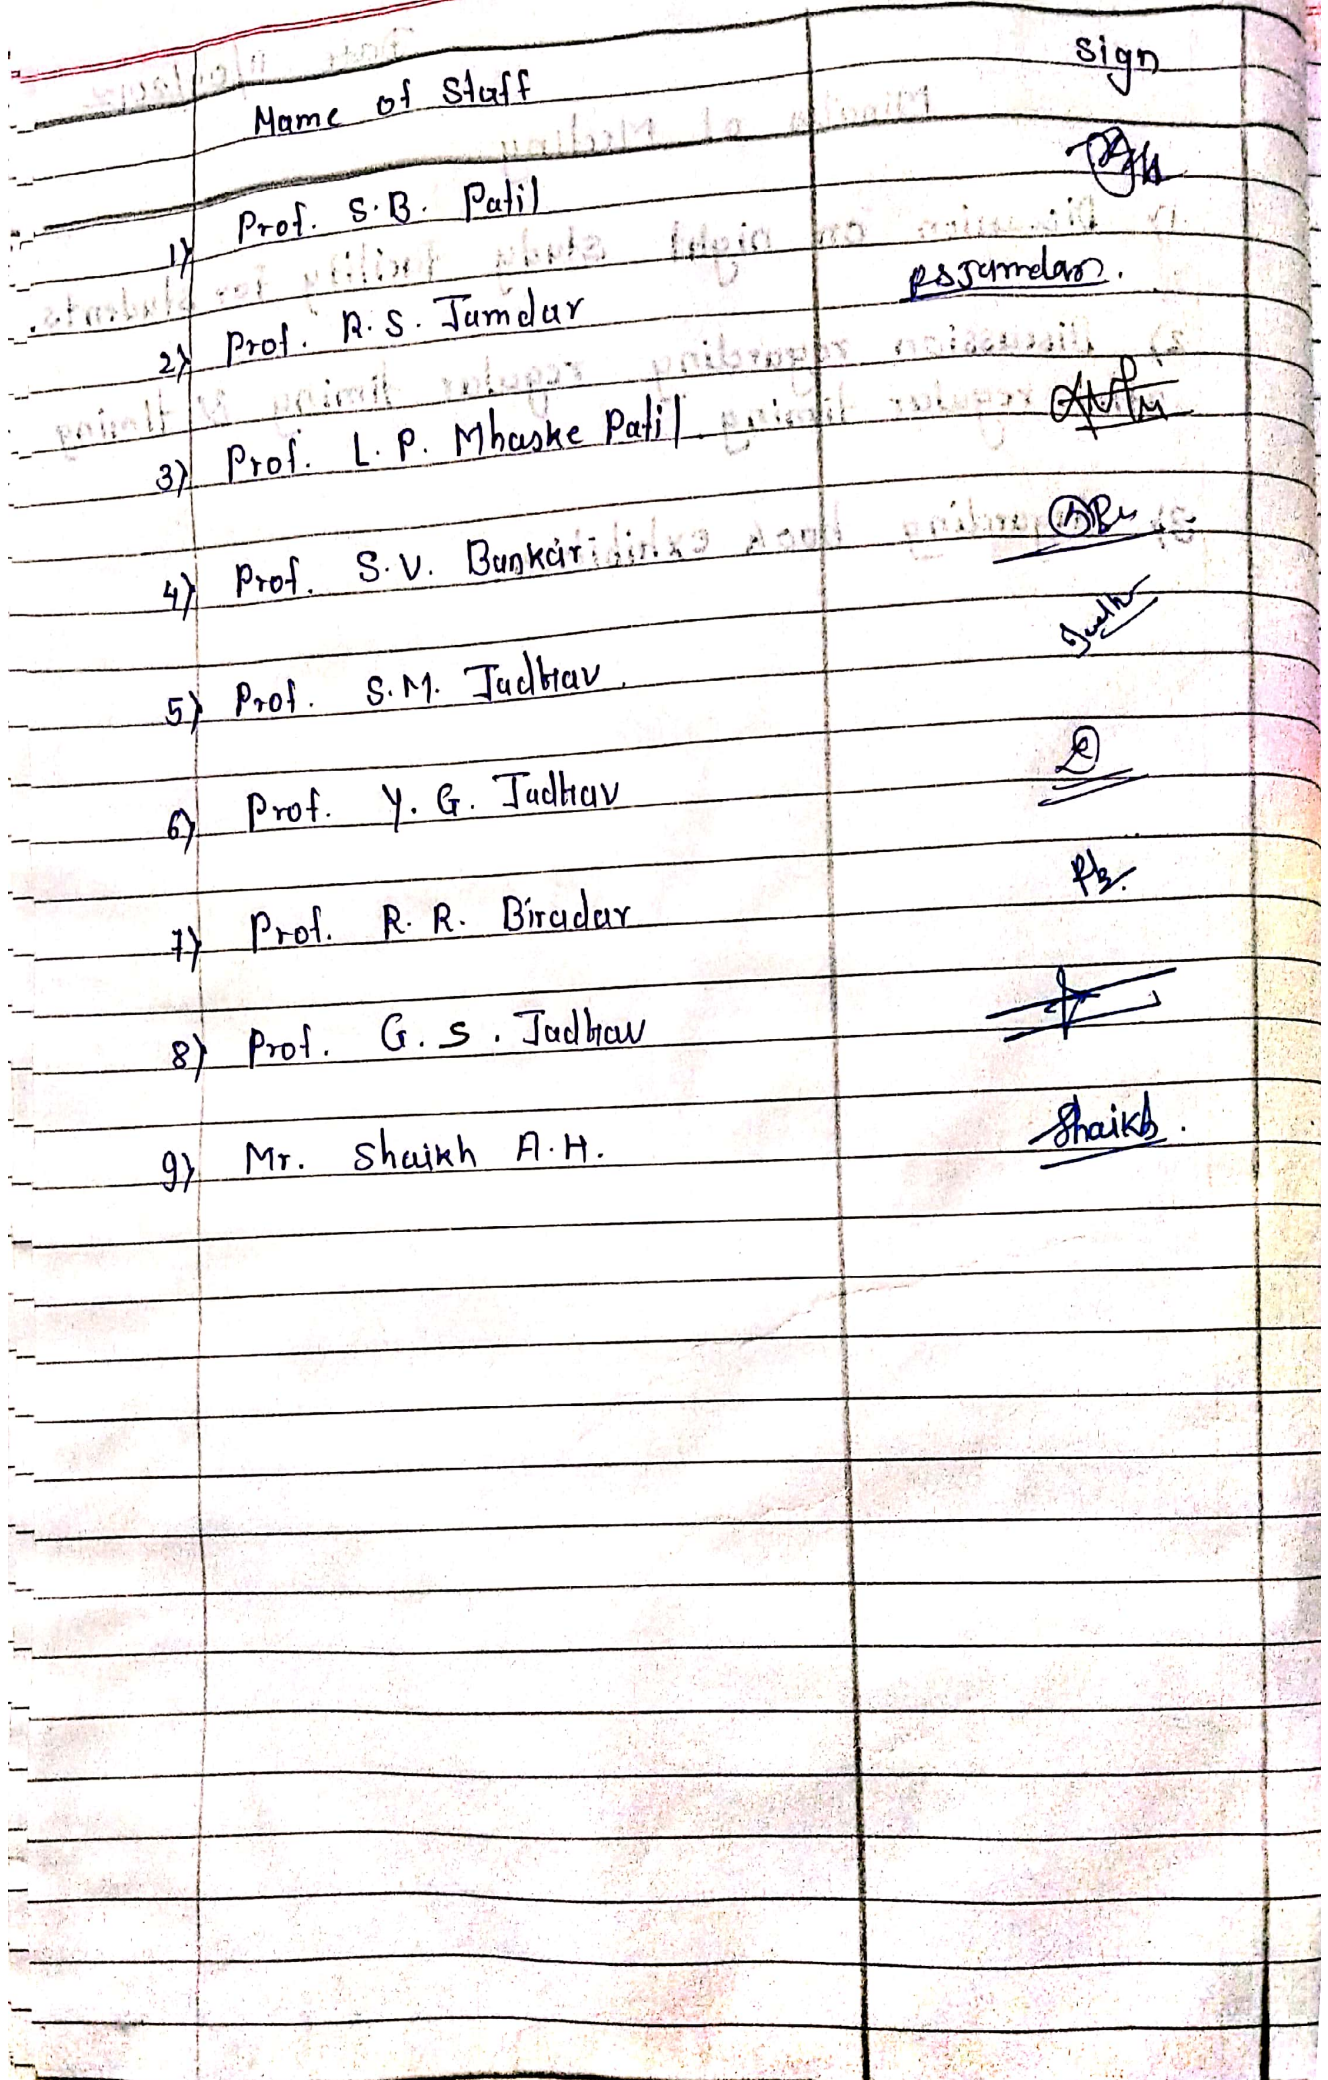 Name of Staff Sign
1) Prof. S.B. Patil
2) Prof. R.S. Jamdar RSJamdar.
3) Prof. L.P. Mhaske Patil
4) Prof. S.V. Bankar
5) Prof. S.M. Jadhav.
6) Prof. Y.G. Jadhav
7) Prof. R.R. Biradar
8) Prof. G.S. Jadhav
9) Mr. Shaikh A.H. Shaikh.